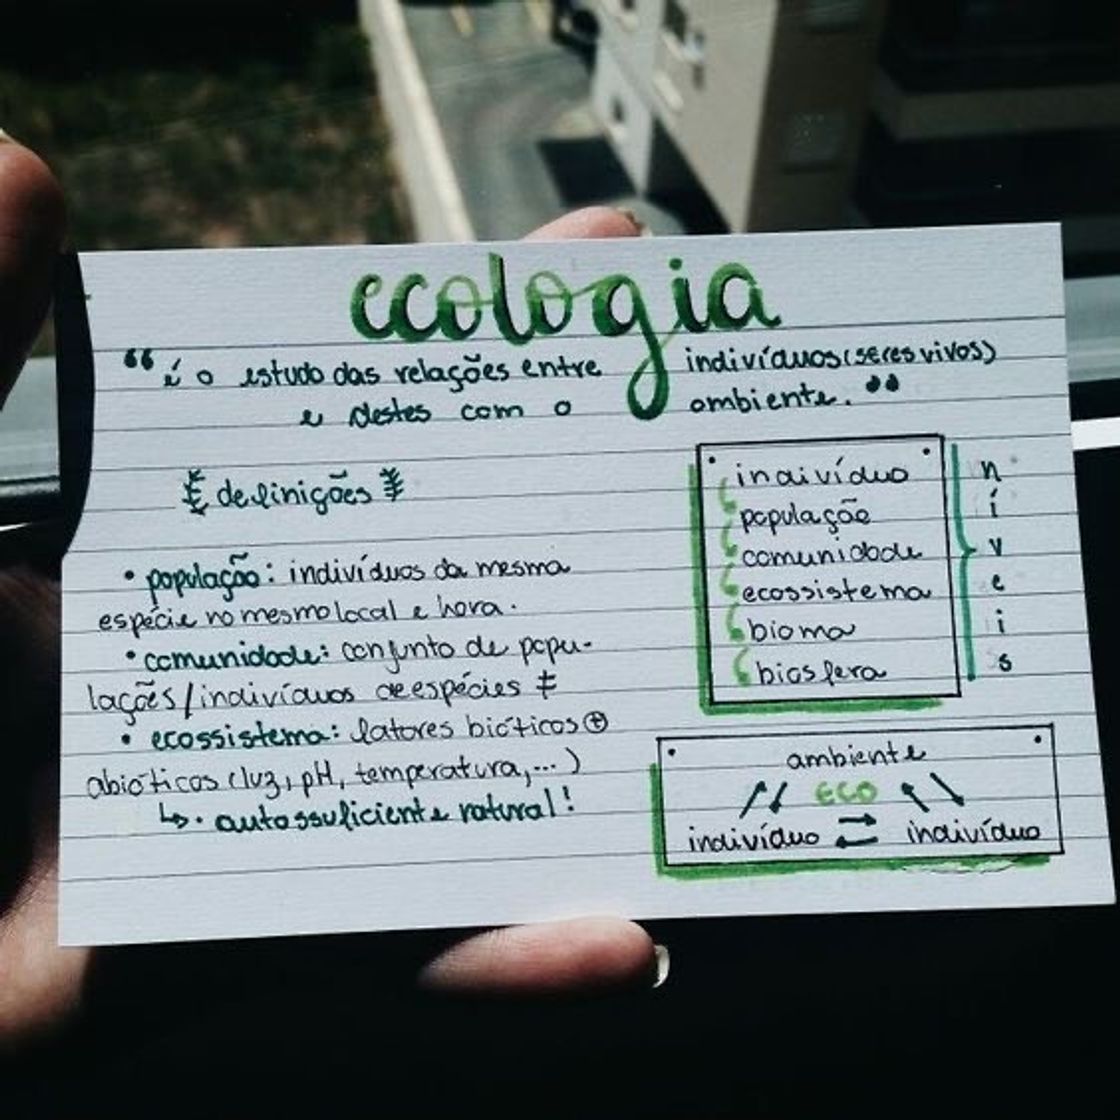 ecologia
“é o estudo das relações entre indivíduos (seres vivos)
e destes com o ambiente.”
definições
• população: indivíduos da mesma
espécie no mesmo local e hora.
• comunidade: conjunto de popu-
lações/indivíduos de espécies ≠
• ecossistema: fatores bióticos ⊕
abióticos (luz, pH, temperatura,...)
↳. autossuficiente natural!
indivíduo
população
comunidade
ecossistema
bioma
biosfera
níveis
ambiente
ECO
indivíduo ⇄ indivíduo